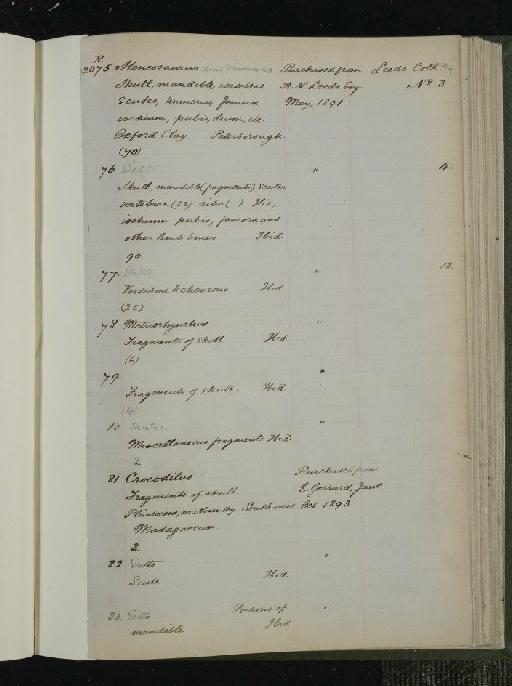 R
2075 Steneosaurus Purchased from Leeds Coll.
Skull, mandible, vertebrae A. N. Leeds Esq. No. 3
Scutes, humerus, femora May, 1891
ischium, pubis, ilium, etc.
Oxford Clay Peterborough.
(70)
76 Ditto " 4.
Skull, mandible (fragments), Scutes
vertebrae (52) ribs ( ) Ilia,
ischium pubis, femora and
other limb bones Ibid
90
77. Ditto " 13.
Vertebrae & chevrons Ibid
(25)
78 Metriorhynchus "
Fragments of skull Ibid.
(6)
79 "
Fragments of skull. Ibid
(4)
80 "
Miscellaneous fragments Ibid.
2
81 Crocodilus Purchased from
Fragments of skull E. Gerrard, Junr.
Pleistocene, South west Oct. 1893
Madagascar.
2.
82 Ditto "
Scute Ibid.
83. Ditto Portions of "
mandible Ibid